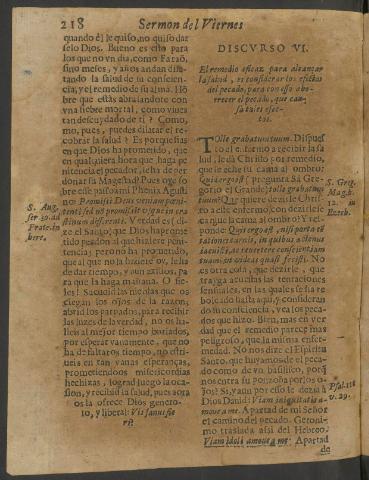 218 Sermon del Viernes
quando él le quiso, no quiso dar
selo Dios. Bueno es esto para
los que no vn dia, como Faraõ,
sino meses, y años andan dila-
tando la salud de su conscien-
cia, y el remedio de su alma. Hõ
bre que estàs abrasandote con
vna fiebre mortal, como viues
tan descuydado de ti? Como,
mo, pues, puedes dilatar el re-
cobrar la salud? Es porque sias
en que Dios ha prometido, que
en qualquiera hora que haga pe-
nitencia el pecador, le ha de per-
donar su Magestad? Pues oye so-
bre esse passo a mi Phenix Agusti
no:
S. Aug.
ser 39. ad
Frat. in
here.
ce el Santo, que Dios ha prome-
tido perdon al que hiziere peni-
tencia; pero no ha prometido,
que al que no la hiziere oy, le ha
de dar tiempo, y aun auxilios, pa
ra que la haga mañana. O fie-
les! Sacudid las nieblas que os
ciegan los ojos de la razon,
abrid los parpados, para recibir
las luzes de la verdad, no os ha-
lleis al mejor tiempo burlados,
por esperar vanamente, que no
ha de faltaros tiempo, no estri-
ueis en tan vanas esperanças,
prometiendoos misericordias
hechizas, lograd luego la oca-
sion, y recibid la salud, pues aora
os la ofrece Dios genero-
so, y liberal: Vis sanus fie
ri?
DISCVRSO VI.
El remedio eficaz para alcançar
la salud, es considerar los efectos
del pecado, para con esso abo-
rrecer el pecado, que cau-
sa tales efec-
tos.
Tolle grabatum tuum. Dispues
to el enfermo à recibir la sa
lud, le dà Christo por remedio,
que se eche su cama al ombro:
Quid ergo est? (pregunta San Gre-
gorio el Grande) tolle grabatum
tuum? Que quiere dezirle Chris-
to a este enfermo, con dezirle to
ca que la cama al ombro? Y res-
ponde: Quid ergo est, nisi porta tẽ
tationes carnis, in quibus actenus
iacuisti,
S. Greg.
Mag. h.
12. in
Ezech.
No
es otra cosa, que dezirle, que
trayga acuestas las tentaciones
sensuales, en las quales se ha re
bolcado hasta aqui, y consideran
do su conciencia, vea los peca-
dos que hizo. Bien, mas en ver
dad que el remedio parece mas
peligroso, que la misma enfer-
medad. No nos dize el Espiritu
Santo, que huyamos de el peca-
do como de vn basilisco, porq̃
nos entra su ponzoña por los o-
jos? Si, y aun por esso le dezia à
Dios Dauid: Viam iniquitatis a-
moue a me. Apartad de mi Señor
el camino del pecado. Geroni-
mo traslada assi del Hebreo:
Viam idoli amoue à me. Apartad
Psal. 118
v. 29.
de